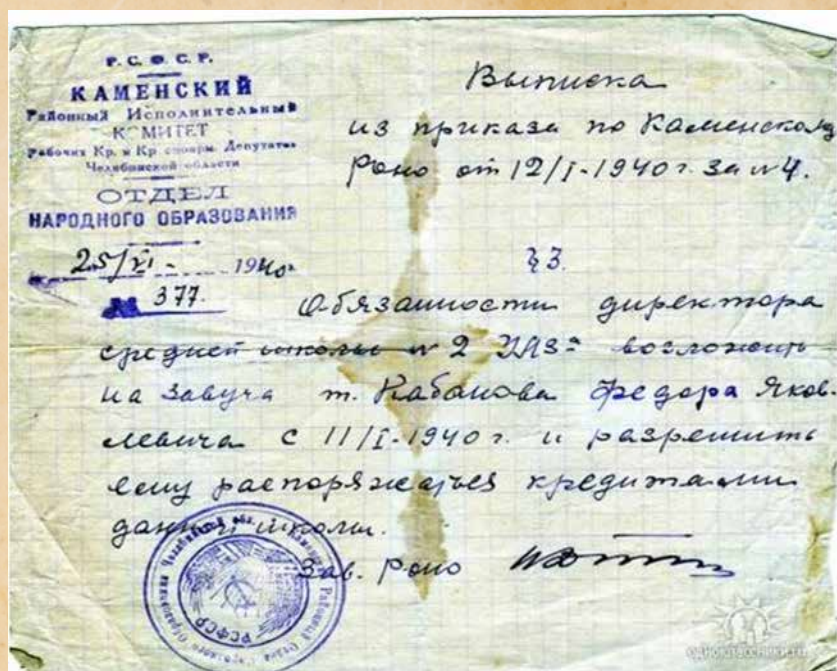 Р. С. Ф. С. Р.
КАМЕНСКИЙ
Районный Исполнительный
КОМИТЕТ
Рабочих Кр. и Кр. Депутатов
Челябинской области
ОТДЕЛ
НАРОДНОГО ОБРАЗОВАНИЯ
25/VI- 1940г
№ 377.
Выписка
из приказа по Каменскому
Роно от 12/I-1940г. за №4.
§3.
Обязанности директора
средней школы №2 УАЗа возложить
на завуча т. Кабанова Федора Яков-
левича с 11/I-1940г. и разрешить
ему распоряжаться кредитами
данной школы.
Зав. Роно
РСФСР
одноклассники.ru